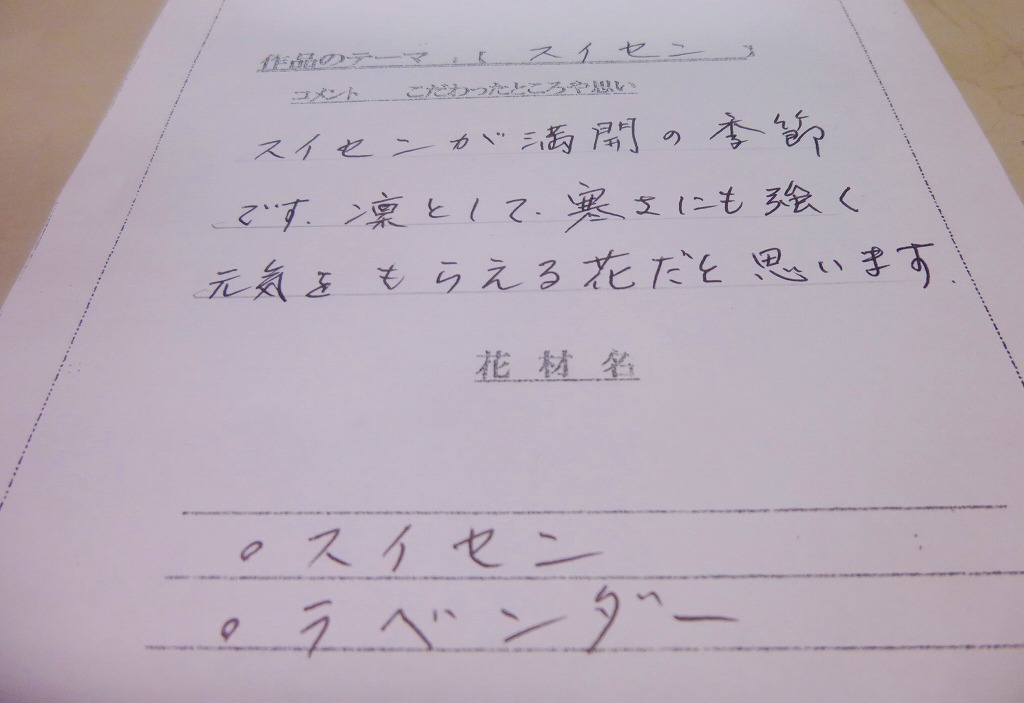 作品のテーマ :【 スイセン 】
コメント こだわったところや思い
スイセンが満開の季節
です。凛として、寒さにも強く
元気をもらえる花だと思います。
花材名
○スイセン
○ラベンダー